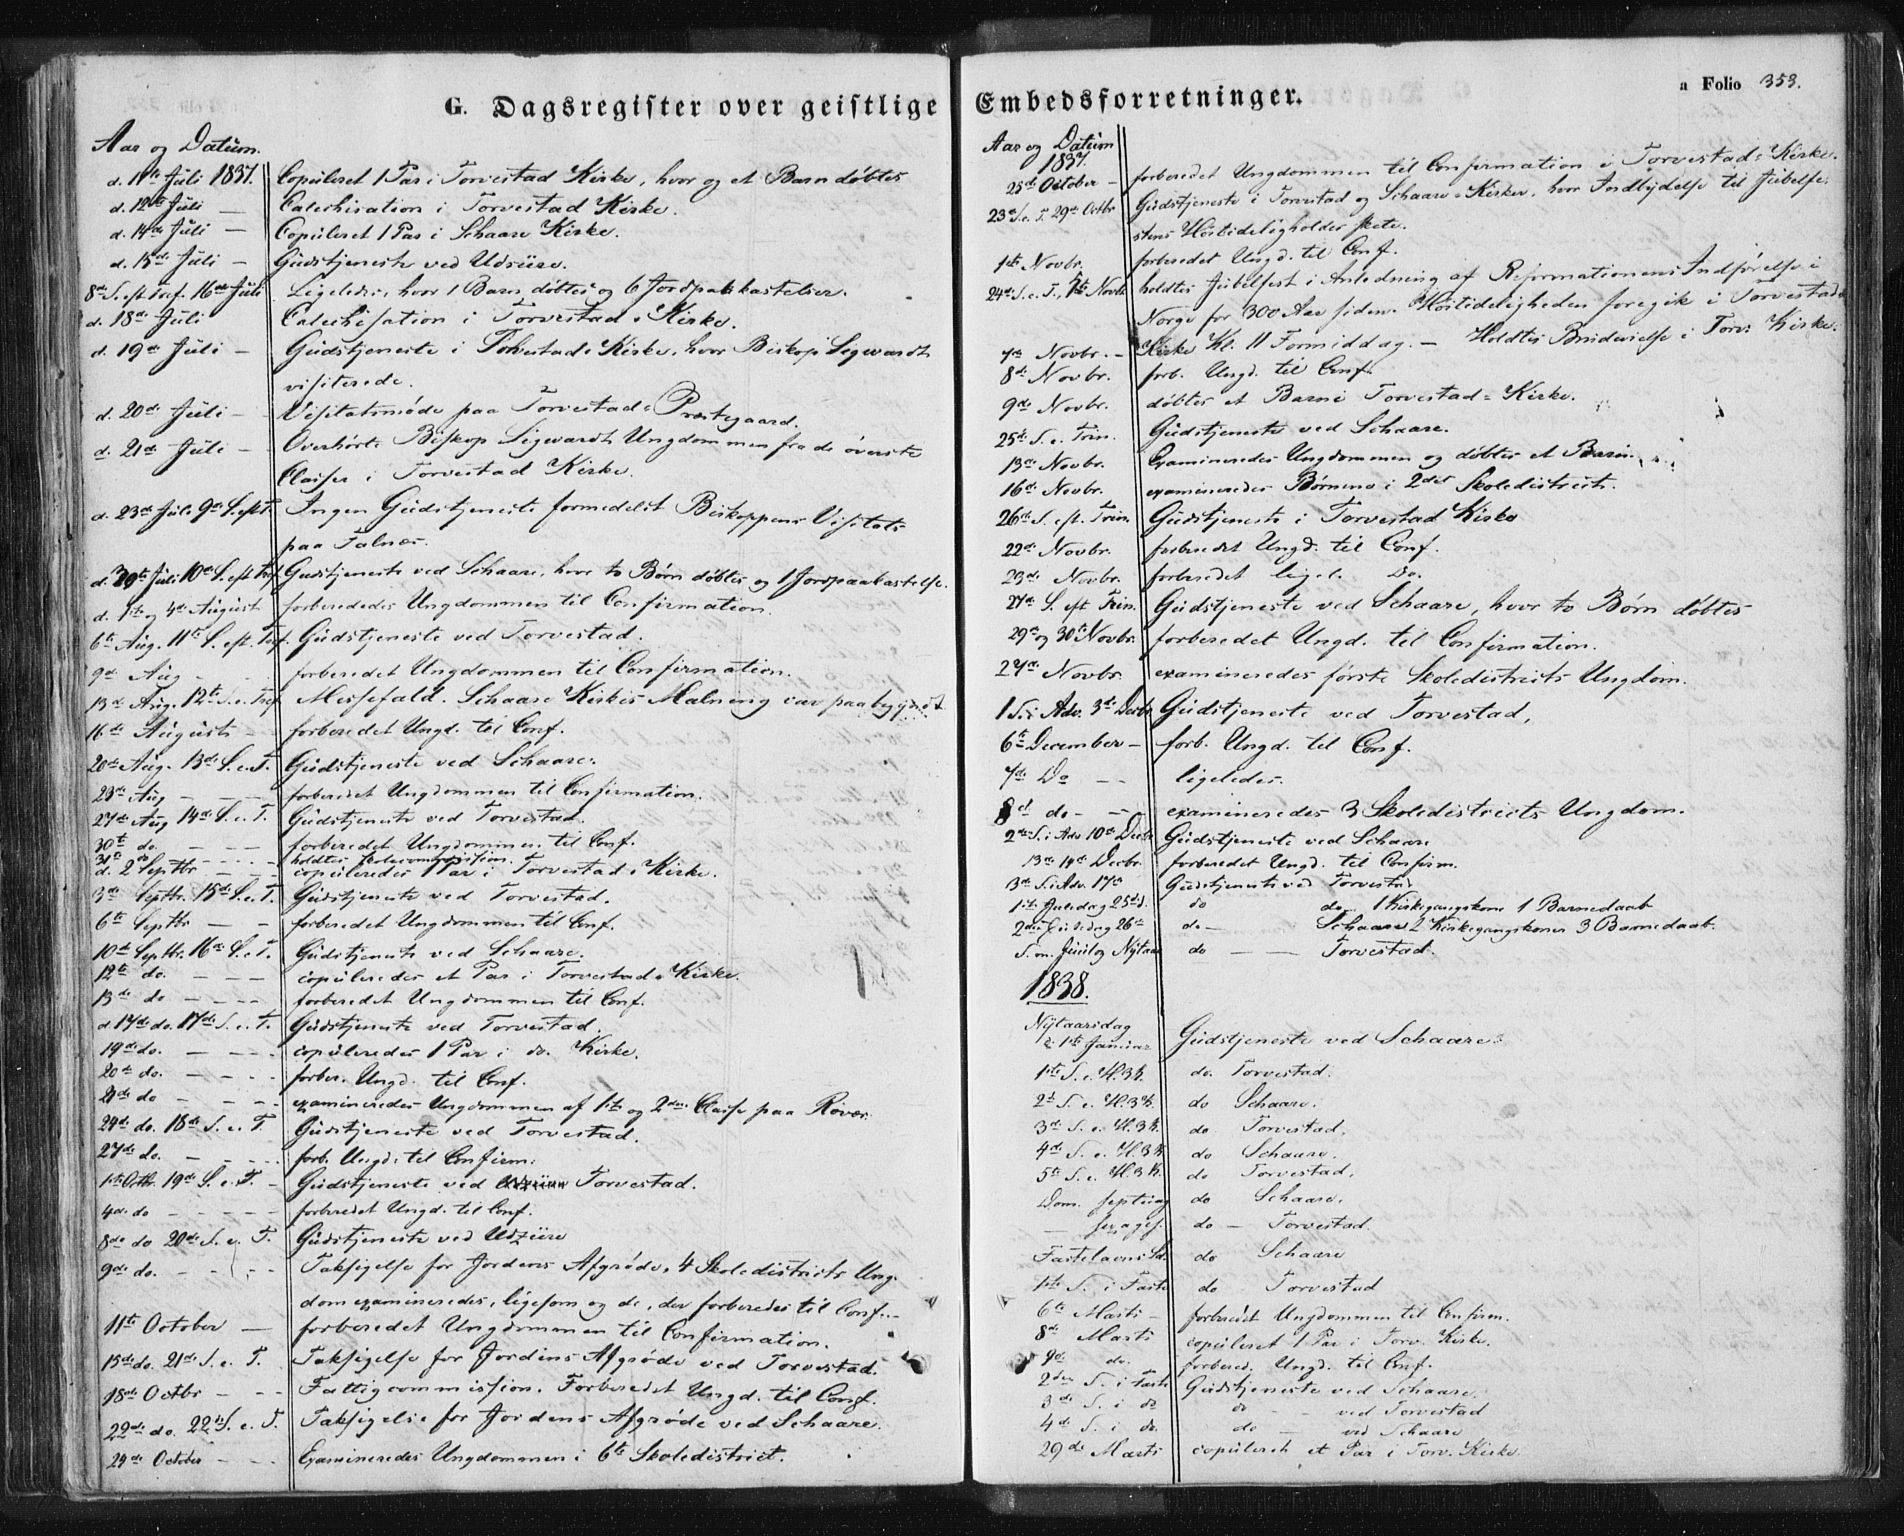 G. Dagsregister over geistlige
Aar og Datum.
d. 11te Juli 1837. Copuleret 1 Par i Torvestad Kirke, hvor og et Barn döbtes
d. 12te Juli — Catechisation i Torvestad Kirke.
d. 14de Juli — Copuleret 1 Par i Schaare Kirke.
d. 15de Juli — Gudstjeneste ved Udsüre.
8de S. eft Tref. 16de Juli Ligeledes, hvor 1 Barn döbtes og 6 Jordpaakastelser.
d. 18de Juli Catechisation i Torvestad Kirke.
d. 19de Juli — Gudstjeneste i Torvestads Kirke, hvor Biskop Sigwardt
visiterede.
d. 20de Juli — Visitatsmöde paa Torvestads Præstegaard.
d. 21de Juli — Overhörte Biskop Sigwardt Ungdommen fra de överste
Classer i Torvestad Kirke.
d. 23de Juli 9de S. eft T. Ingen Gudstjeneste formedelst Biskoppens Visitats
paa Falnæs.
d. 30te Juli 10de S. eft Tref. Gudstjeneste ved Schaare, hvor to Börn döbtes og 1 Jordpaakastelse.
d. 1te og 4de August forberedes Ungdommen til Confirmation.
6te Aug. 11te S. eft. Tref. Gudstjeneste ved Torvestad.
9de Aug — forberedet Ungdommen til Confirmation.
13de Aug. 12te S. e. Tref Messefald. Schaare Kirkes Malning var paabegyndt
16de August — forberedet Ungd. til Conf.
20de Aug. 13de S. e. T. Gudstjeneste ved Schaare.
23de Aug — — — forberedet Ungdommen til Confirmation.
27de Aug 14de S. e. T. Gudstjeneste ved Torvestad.
30te do. — — — forberedet Ungdommen til Conf.
31te do — — — holdtes Skolecommission.
d. 2 Septbr — — copuleredes 1 Par i Torvestads Kirke.
3de Septbr. 15de S. e. T. Gudstjeneste ved Torvestad.
6te Septbr — — forberedet Ungdommen til Conf.
10de Septbr. 16de S. e. T. Gudstjeneste ved Schaare.
12te do. — — — copuleredes et Par i Torvestads Kirke.
13de do — — — forberedet Ungdommen til Conf.
d. 17de do. 17de S. e. T. Gudstjeneste ved Torvestad.
19de do. — — — copuleredes 1 Par i do. Kirke.
20de do. — — — forber. Ungd. til Conf.
21de do — — — examineredes Ungdommen af 1te og 2den Classe paa Rövær.
24de do. 18de S. e. T. Gudstjeneste ved Torvestad.
27de do. — — — forb. Ungd. til Confirm:
1te Octbr. 19de S. e. T. — Gudstjeneste ved Torvestad.
4de do — — — forberedet Ungd. til Conf.
8de do 20de S. e. T. Gudstjeneste ved Udzüre
9de do. — — — Taksigelse for Jordens Afgröde, 4 Skoledistricts Ung-
dom examineredes, ligesom og de, der forberedes til Conf.
11te October — forberedet Ungdommen til Confirmation.
15de do. 21de S. e. T. Taksigelse for Jordens Afgröde ved Torvestad.
18de Octbr — — Fattigcommission. Forberedet Ungd. til Conf.
22de do. 22de S. e. T. Taksigelse for Jordens Afgröde ved Schaare.
24de October — — Examineredes Ungdommen i 6te Skoledistrict.
Embedsforretninger.
a Folio 353.
Aar og Datum
1837.
25de October — forberedet Ungdommen til Confirmation i Torvestads Kirke.
23de S. e. T. 29de Octbr Gudstjeneste i Torvestad og Schaare Kirker, hvor Indbydelse til Jubelfe-
stens Höitideligholdes skete.
1te Novbr. forberedet Ungd. til Conf.
24de S. e. T., 5te Novbr holdtes Jubelfest i Anledning af Reformationens Indförelse i
Norge for 300 Aar siden. Höitideligheden foregik i Torvestads
Kirke Kl. 11 Formiddag. —
7de Novbr. — Holdtes Brudevielse i Torv: Kirke.
8de Novbr. forb. Ungd. til Conf.
9de Novbr. döbtes et Barn i Torvestad Kirke.
25de S. e. Trin. Gudstjeneste ved Schaare.
13de Novbr. Examineredes Ungdommen og döbtes et Barn.
16de Novbr. examineredes Börnene i 2det Skoledistrict.
26de S. eft. Trin. Gudstjeneste i Torvestad Kirke
22de Novbr. forberedet Ungd. til Conf.
23de Novbr. forberedet ligel. Do.
27de S. eft Trin. Gudstjeneste ved Schaare, hvor to Börn döbtes
29de og 30te Novbr. forberedet Ungd. til Confirmation.
27de Novbr. examineredes förste Skoledistricts Ungdom.
1 S. i Adv. 3de Decbr Gudstjeneste ved Torvestad,
6te December — forb. Ungd. til Conf.
7de Do — — ligeledes.
8d do — — examineredes 3 Skoledistricts Ungdom.
2de S. i Adv 10de Decbr Gudstjeneste ved Schaare
13de 14de Decbr. forberedet Ungd. til Confirm.
3de S. i Adv. 17de Gudstjeneste ved Torvestad
1te Juledag 25de d. do do 1 Kirkegangskone 1 Barnedaab
2den Juledag 26de do — Schaare 2 Kirkegangskoner 3 Barnedaab.
S. m. Juul og Nytaar do — — Torvestad.
1838.
Nytaarsdag
d. 1te Januar Gudstjeneste ved Schaare.
1te S. e. H. 3 K. do. Torvestad.
2d S. e. H. 3 K. do Schaare.
3de S. e. H. 3 K. do Torvestad.
4de S. e. H. 3 K do Schaare.
5te S. e. H. 3 K. do Torvestad.
Dom. septuag do Schaare.
— sexages. do — Torvestad.
Fastelavns Sd. do Schaare
1te S. i Faste do Torvestad
6te Marts — forberedet Ungdommen til Confirm.
8de Marts copuleret 1 Par i Torv. Kirke.
9de do. forbered. Ungd. til Conf.
2den S. i Faste Gudstjeneste ved Schaare.
3de S. i do do — ved Torvestad
4de S. i do. do — ved Schaare
29de Marts copuleret et Par i Torv. Kirke.